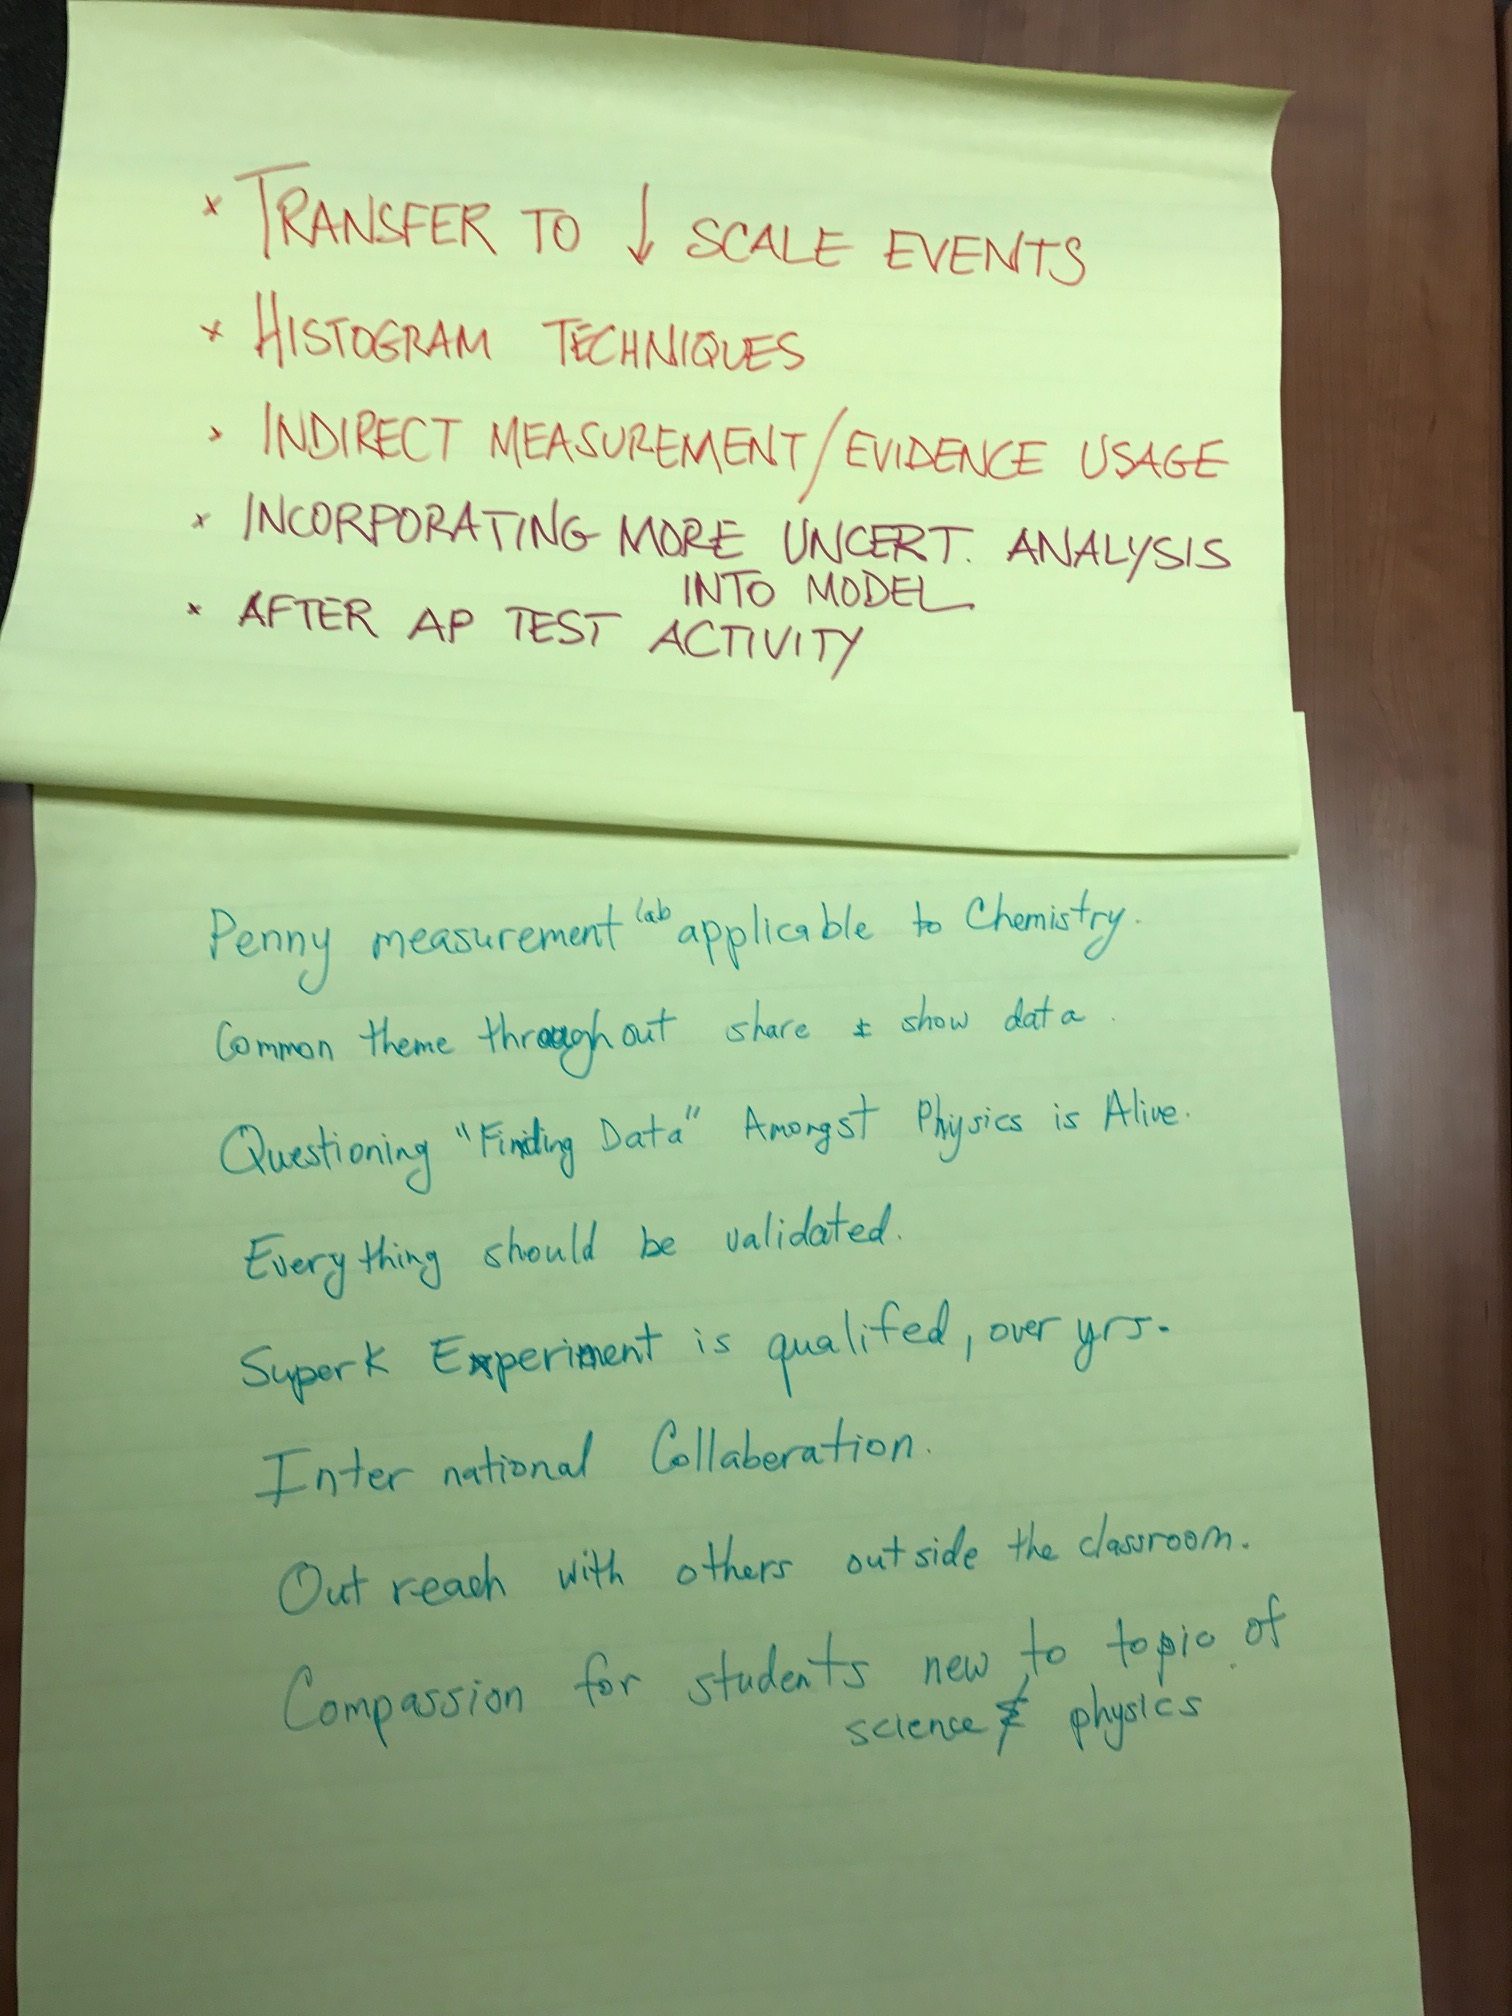 * TRANSFER TO ↓ SCALE EVENTS
* HISTOGRAM TECHNIQUES
* INDIRECT MEASUREMENT/EVIDENCE USAGE
* INCORPORATING MORE UNCERT. ANALYSIS
INTO MODEL
* AFTER AP TEST ACTIVITY
Penny measurement lab applicable to Chemistry.
Common theme throughout share & show data.
Questioning "Finding Data" Amongst Physics is Alive.
Everything should be validated.
Super K Experiment is qualifed, over yrs.
International Collaberation.
Out reach with others outside the classroom.
Compassion for students new to topic of
science & physics